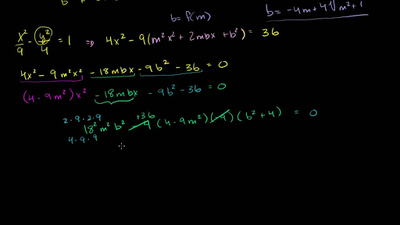 b = f(m)
b = -4m + 4√m² + 1
x²/9 - y²/4 = 1 ⇒ 4x² - 9(m²x² + 2mbx + b²) = 36
4x² - 9m²x² - 18mbx - 9b² - 36 = 0
(4 - 9m²)x² - 18mbx - 9b² - 36 = 0
2·9·2·9 +36
18² m² b² - 9 (4 - 9m²)(-9)(b² + 4) = 0
4·9·9